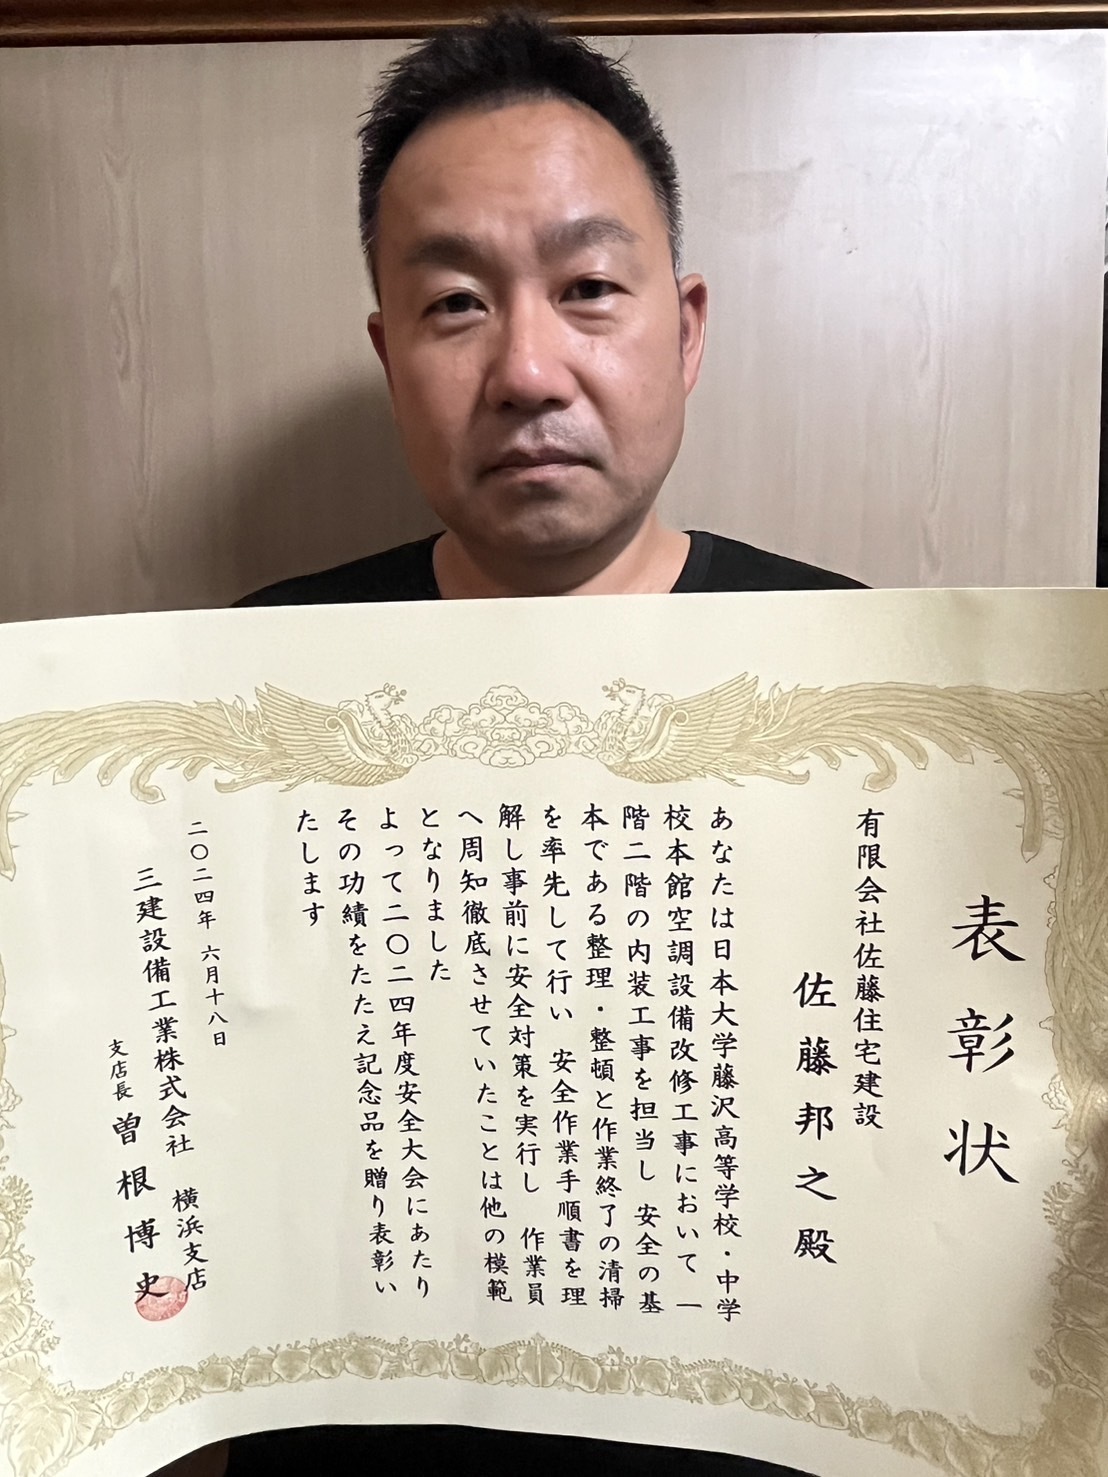 表彰状
有限会社佐藤住宅建設
佐藤邦之殿
あなたは日本大学藤沢高等学校・中学
校本館空調設備改修工事において 一
階二階の内装工事を担当し 安全の基
本である整理・整頓と作業終了の清掃
を率先して行い 安全作業手順書を理
解し事前に安全対策を実行し 作業員
へ周知徹底させていたことは他の模範
となりました
よって二〇二四年度安全大会にあたり
その功績をたたえ記念品を贈り表彰い
たします
二〇二四年 六月十八日
三建設備工業株式会社 横浜支店
支店長 曽根博史